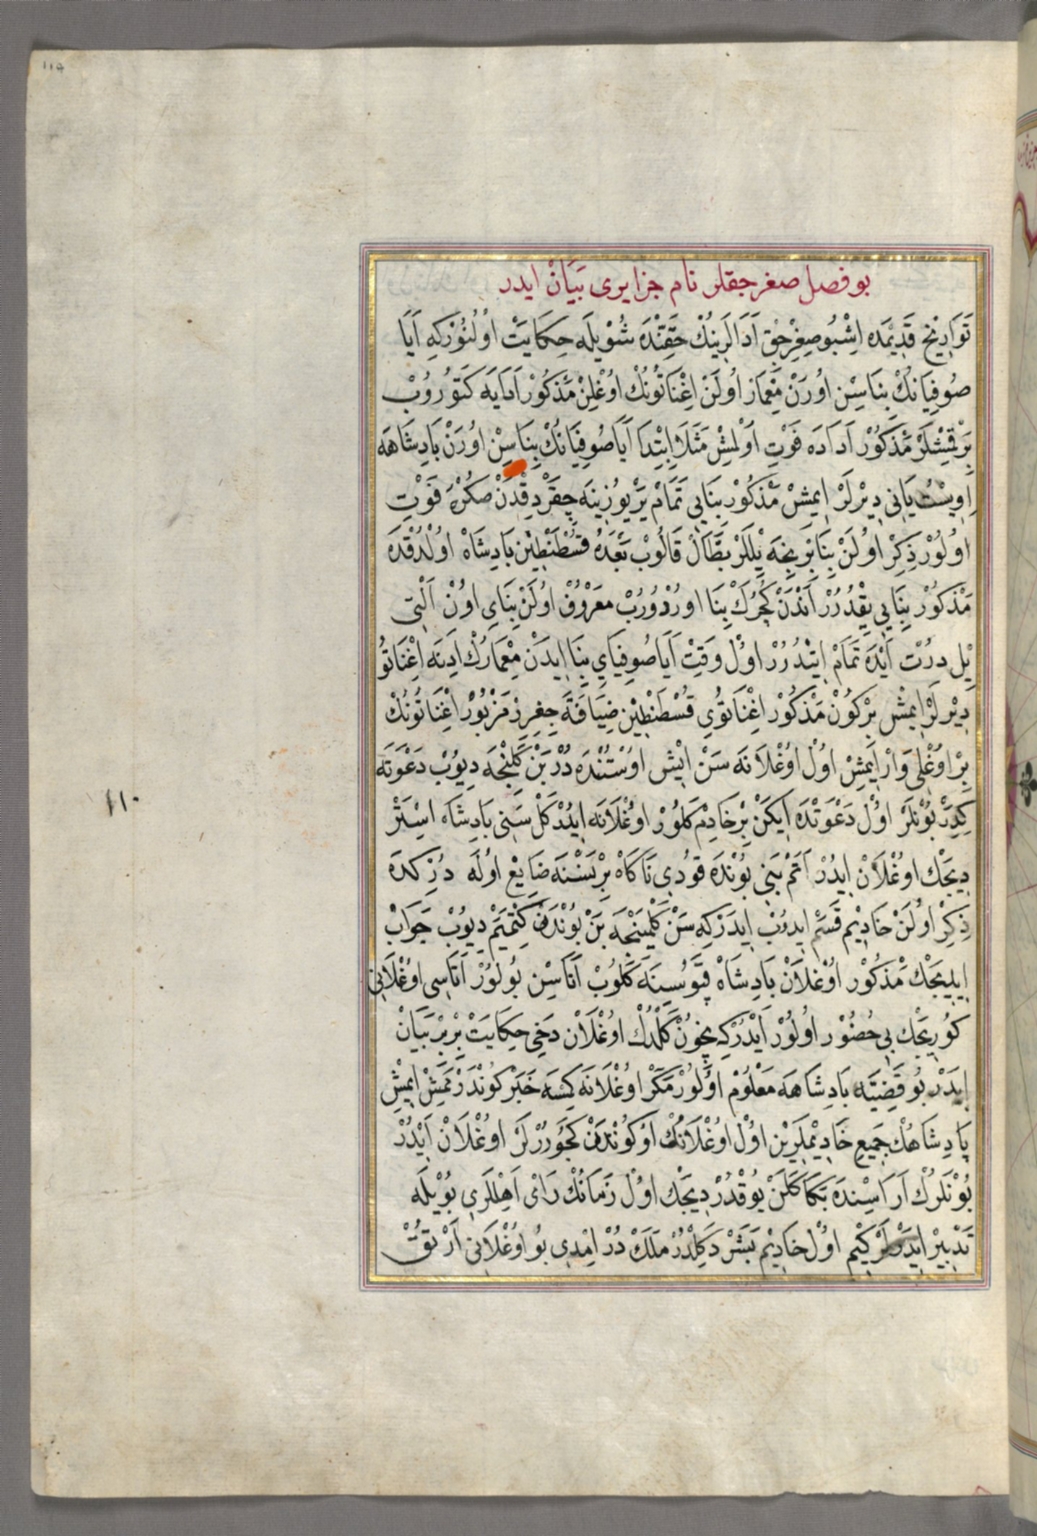 ١١٩
بو فصل صغرجقلر نام جزایری بیان ایدر
تواریخ قدیمده اشبو صغرجق ادالرینك حقنده شویله حكایت اولنور كه ایا
صوفیانك بناسن اورن معمار اولن اغناتونك اوغلن مذكور ادایه كتوروب
برقمشلر مذكور اداده فوت اولمش مثلا ابتدا ایاصوفیانك بناسن اورن بادشاهه
اویستیانی دیرلر ایمش مذكور بنایی تمام یر یوزینه چقردقدن صكره فوت
اولور ذكر اولن بنا بر یجه ییللر بطال قالوب بعده قسطنطین بادشاه اولدقده
مذكور بنایی یقدرر اندن كجرك بنا اوردورب معروف اولن بنای اون التی
ییل درت ایده تمام اتدرر اول وقت ایاصوفیای بنا ایدن معمارك ادینه اغناتو
دیرلر ایمش بركون مذكور اغناتوی قسطنطین ضیافته چغرر مزبور اغناتونك
بر اوغلی وار ایمش اول اوغلانه سن ایش اوستنده در بن كلنجه دیوب دعوته
كدر بونلر اول دعوتده ایكن بر خادم كلور اوغلانه ایدر كل سنی بادشاه استر
دیجك اوغلان ایدر اتم بنی بونده قودی ناكاه بر نسنه ضایع اوله در كده
ذكر اولن خادیم قسم ایدوب ایدر كه سن كلمینجه بن بوندن كتمیم دیوب جواب
ایلیجك مذكور اوغلان بادشاه قپوسینه كلوب اتاسن بولور اتاسی اوغلانی
كوریجك بی حضور اولور ایدر كه نچون كلدك اوغلان دخی حكایت بربر بیان
ایدر بو قضیته بادشاهه معلوم اولور مكر اوغلانه كسه خبر كوندرممش ایمش
بادشاهك جمیع خادیملرین اول اوغلانك اوكوندن كچوررلر اوغلان ایدر
بونلرك اراسنده بكا كلن یوقدر دیجك اول زمانك رای اهللری بویله
تدبیر ایدرلر كیم اول خادیم بشر دكلدر ملك در امدی بو اوغلانی ارتق
١١٠